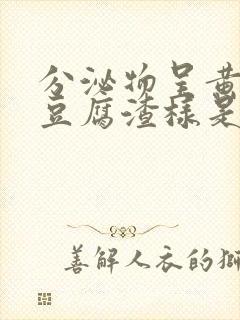 分泌物呈黄
豆腐渣样是
善解人衣的狮